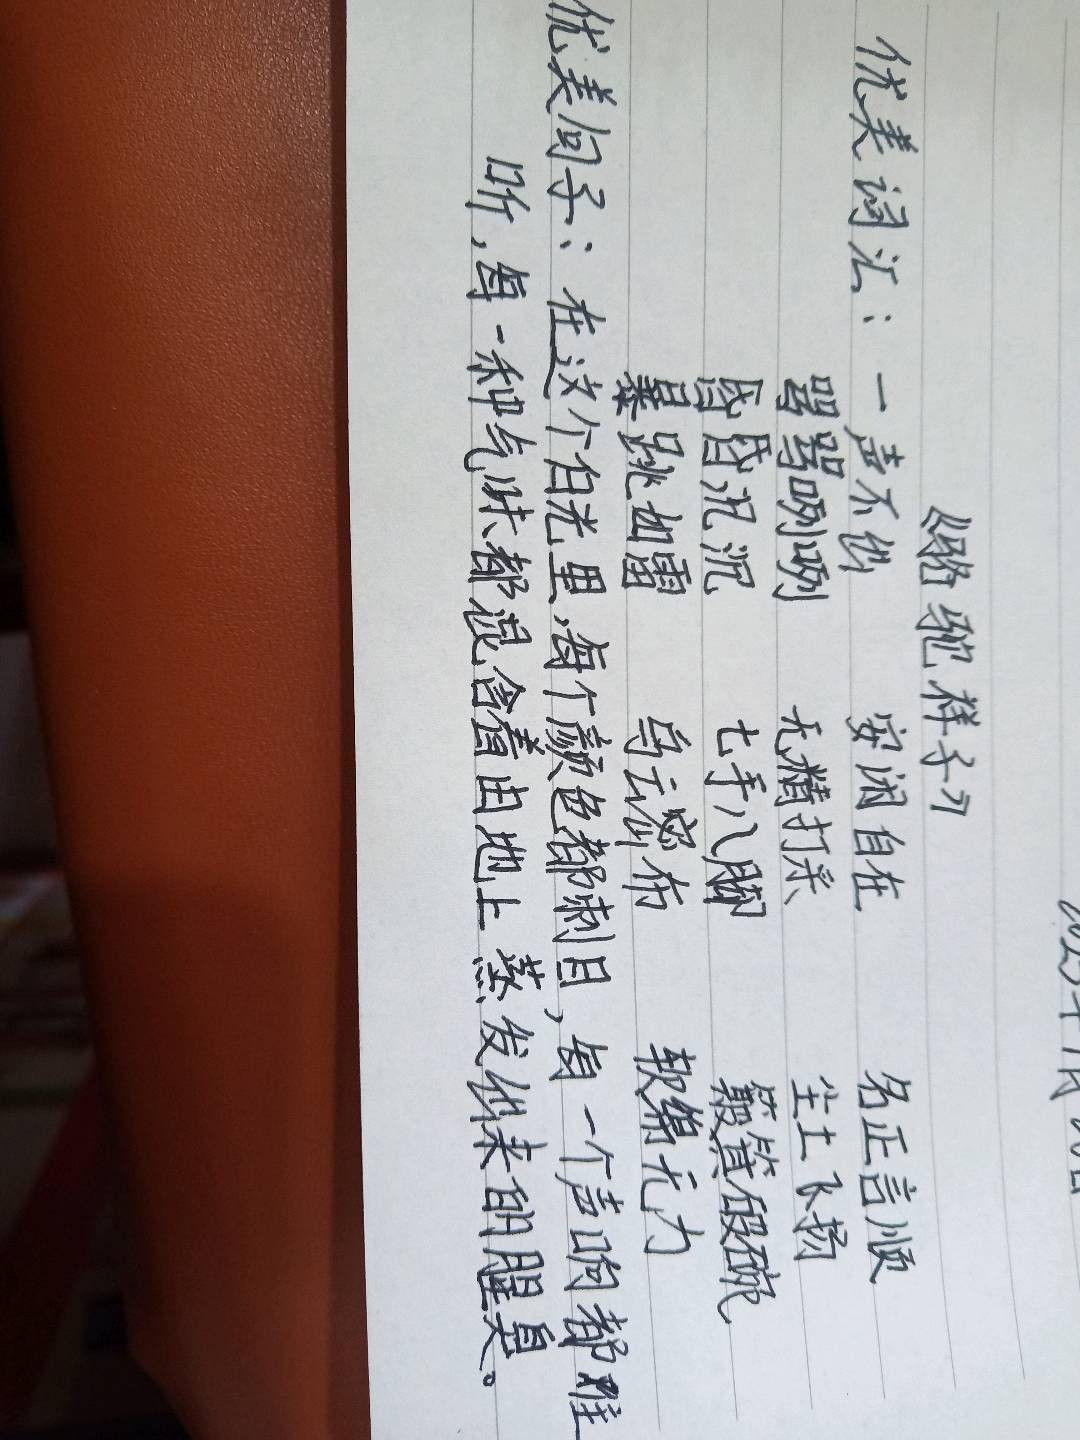 《骆驼祥子》
优美词汇：一声不出 安闲自在 名正言顺
骂骂咧咧 无精打采 尘土飞扬
昏昏沉沉 七手八脚
暴跳如雷 乌云密布 软绵无力
优美句子：在这个白光里，每个颜色都刺目，每一个声响都难
听，每一种气味都混含着由地上蒸发出来的腥臭。